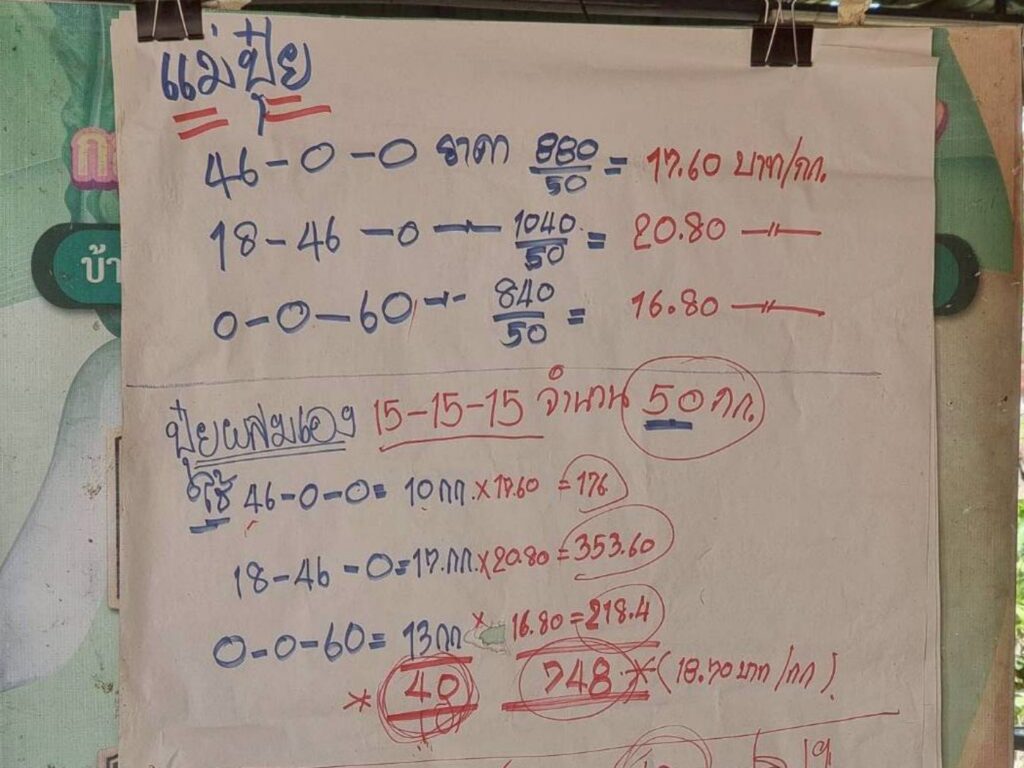 แม่ปุ๋ย
46-0-0 ราคา 880/50 = 17.60 บาท/กก.
18-46-0 —〃— 1040/50 = 20.80 —〃—
0-0-60 —〃— 840/50 = 16.80 —〃—
บ้า
ปุ๋ยผสมเอง 15-15-15 จำนวน 50 กก.
ใช้ 46-0-0 = 10 กก. × 17.60 = 176
18-46-0 = 17.กก. × 20.80 = 353.60
0-0-60 = 13 กก × 16.80 = 218.4
* 40 748 * (18.70 บาท/กก).